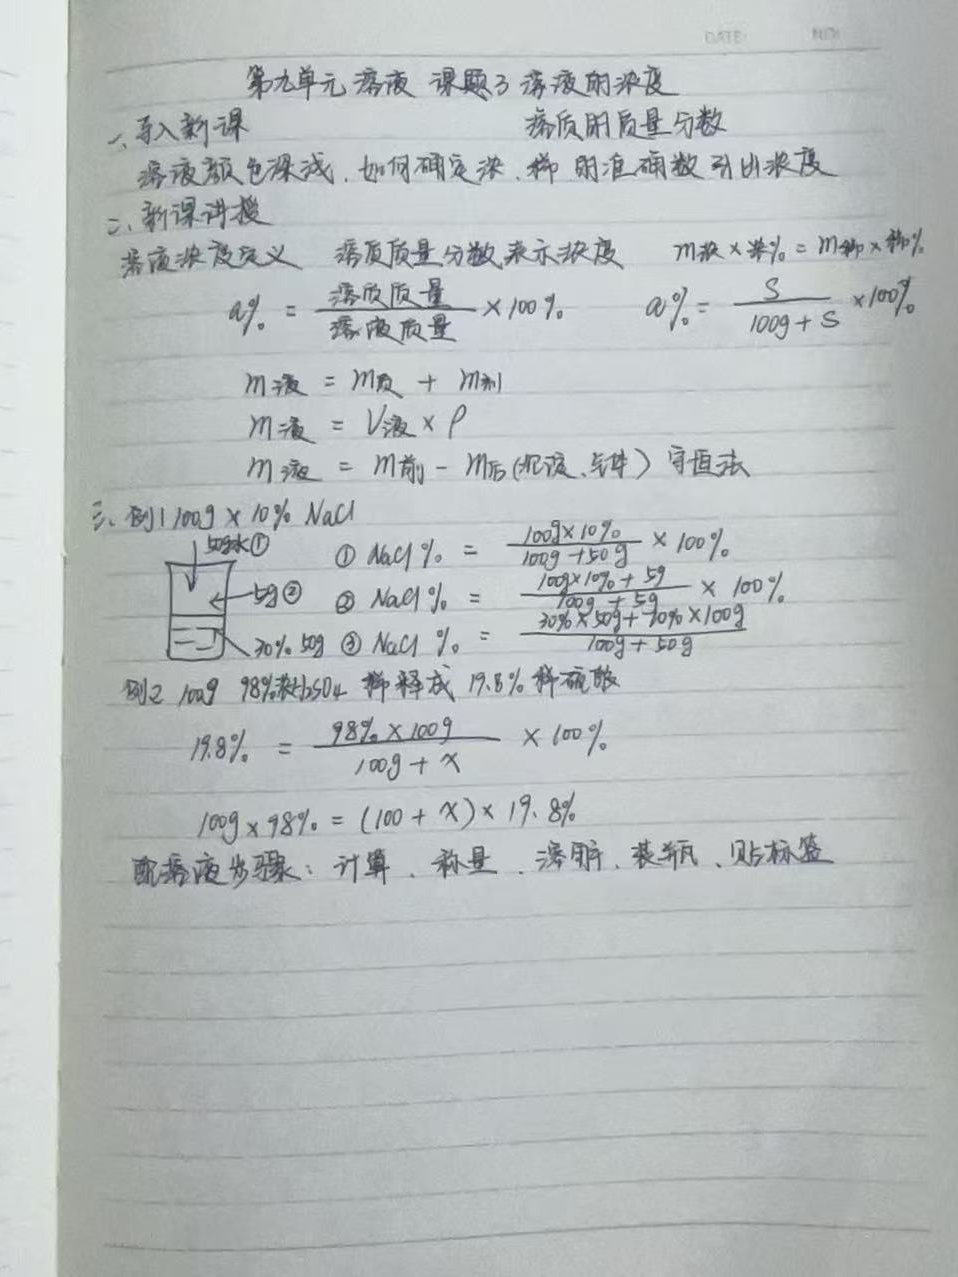 DATE: NO:
第九单元 溶液 课题3 溶液的浓度
一、导入新课 溶质的质量分数
溶液颜色深浅、如何确定浓、稀的准确数引出浓度
二、新课讲授
溶液浓度定义 溶质质量分数表示浓度 m浓×浓%=m稀×稀%
a% = 溶质质量/溶液质量 ×100% a%= S/100g+S ×100%
m液 = m质 + m剂
m液 = V液 × ρ
m液 = m前 - m后(沉淀、气体) 守恒法
三、例1 100g × 10% NaCl
50g水①
① NaCl % = 100g×10%/100g+50g × 100%
5g② ② NaCl % = 100g×10%+5g/100g+5g × 100%
30% 50g ③ NaCl % = 30%×50g+10%×100g/100g+50g
例2 100g 98%浓H₂SO₄ 稀释成 19.8% 稀硫酸
19.8% = 98%×100g/100g+x × 100%
100g×98% = (100+x)×19.8%
配溶液步骤: 计算、称量、溶解、装瓶、贴标签